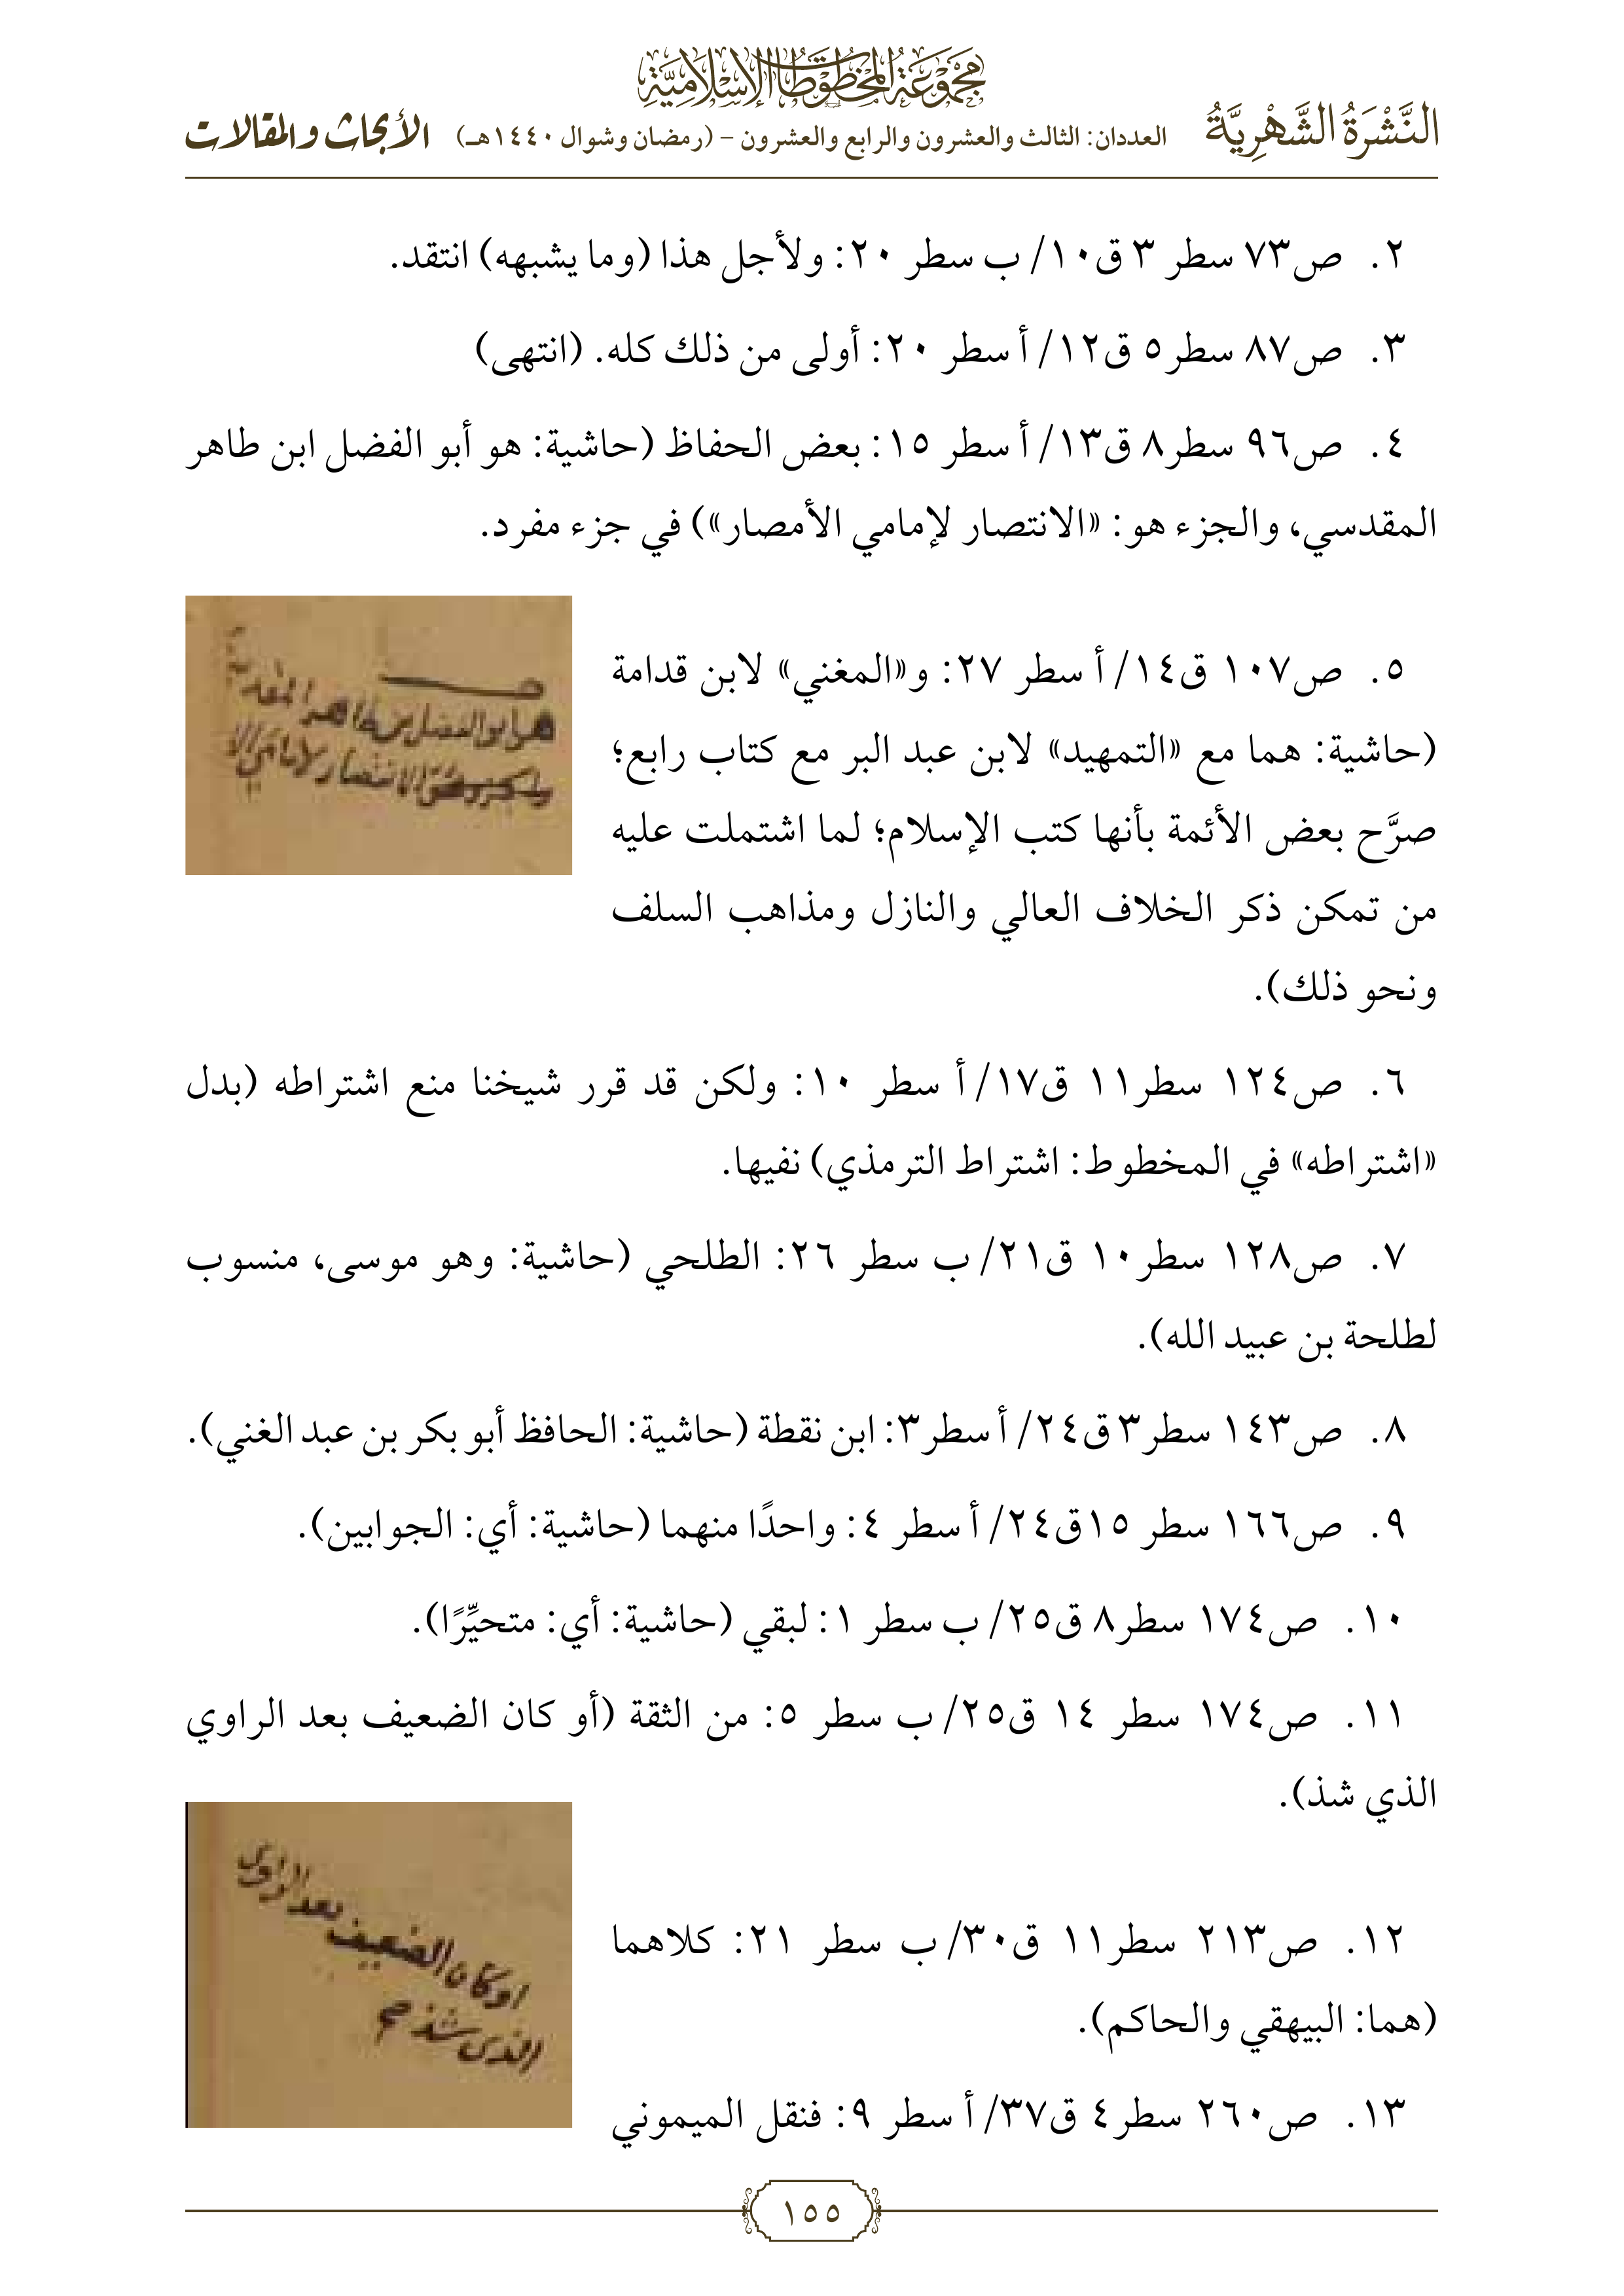 مجموعة المخطوطات الإسلامية
النَّشْرَةُ الشَّهْرِيَّةُ العددان: الثالث والعشرون والرابع والعشرون - (رمضان وشوال ١٤٤٠هـ) الأبحاث والمقالات
٢. ص٧٣ سطر ٣ ق١٠/ ب سطر ٢٠: ولأجل هذا (وما يشبهه) انتقد.
٣. ص٨٧ سطر٥ ق١٢/ أ سطر ٢٠: أولى من ذلك كله. (انتهى)
٤. ص٩٦ سطر٨ ق١٣/ أ سطر ١٥: بعض الحفاظ (حاشية: هو أبو الفضل ابن طاهر
المقدسي، والجزء هو: «الانتصار لإمامي الأمصار») في جزء مفرد.
هو ابو الفضل بن طاهر المقدسي
الانتصار لامامي الا
٥. ص١٠٧ ق١٤/ أ سطر ٢٧: و«المغني» لابن قدامة
(حاشية: هما مع «التمهيد» لابن عبد البر مع كتاب رابع؛
صرَّح بعض الأئمة بأنها كتب الإسلام؛ لما اشتملت عليه
من تمكن ذكر الخلاف العالي والنازل ومذاهب السلف
ونحو ذلك).
٦. ص١٢٤ سطر١١ ق١٧/ أ سطر ١٠: ولكن قد قرر شيخنا منع اشتراطه (بدل
«اشتراطه» في المخطوط: اشتراط الترمذي) نفيها.
٧. ص١٢٨ سطر١٠ ق٢١/ ب سطر ٢٦: الطلحي (حاشية: وهو موسى، منسوب
لطلحة بن عبيد الله).
٨. ص١٤٣ سطر٣ ق٢٤/ أ سطر٣: ابن نقطة (حاشية: الحافظ أبو بكر بن عبد الغني).
٩. ص١٦٦ سطر ١٥ق٢٤/ أ سطر ٤: واحدًا منهما (حاشية: أي: الجوابين).
١٠. ص١٧٤ سطر٨ ق٢٥/ ب سطر ١: لبقي (حاشية: أي: متحيِّرًا).
١١. ص١٧٤ سطر ١٤ ق٢٥/ ب سطر ٥: من الثقة (أو كان الضعيف بعد الراوي
الذي شذ).
اوكان الضعيف بعد الراوي
الذى شذ صح
١٢. ص٢١٣ سطر١١ ق٣٠/ ب سطر ٢١: كلاهما
(هما: البيهقي والحاكم).
١٣. ص٢٦٠ سطر٤ ق٣٧/ أ سطر ٩: فنقل الميموني
١٥٥